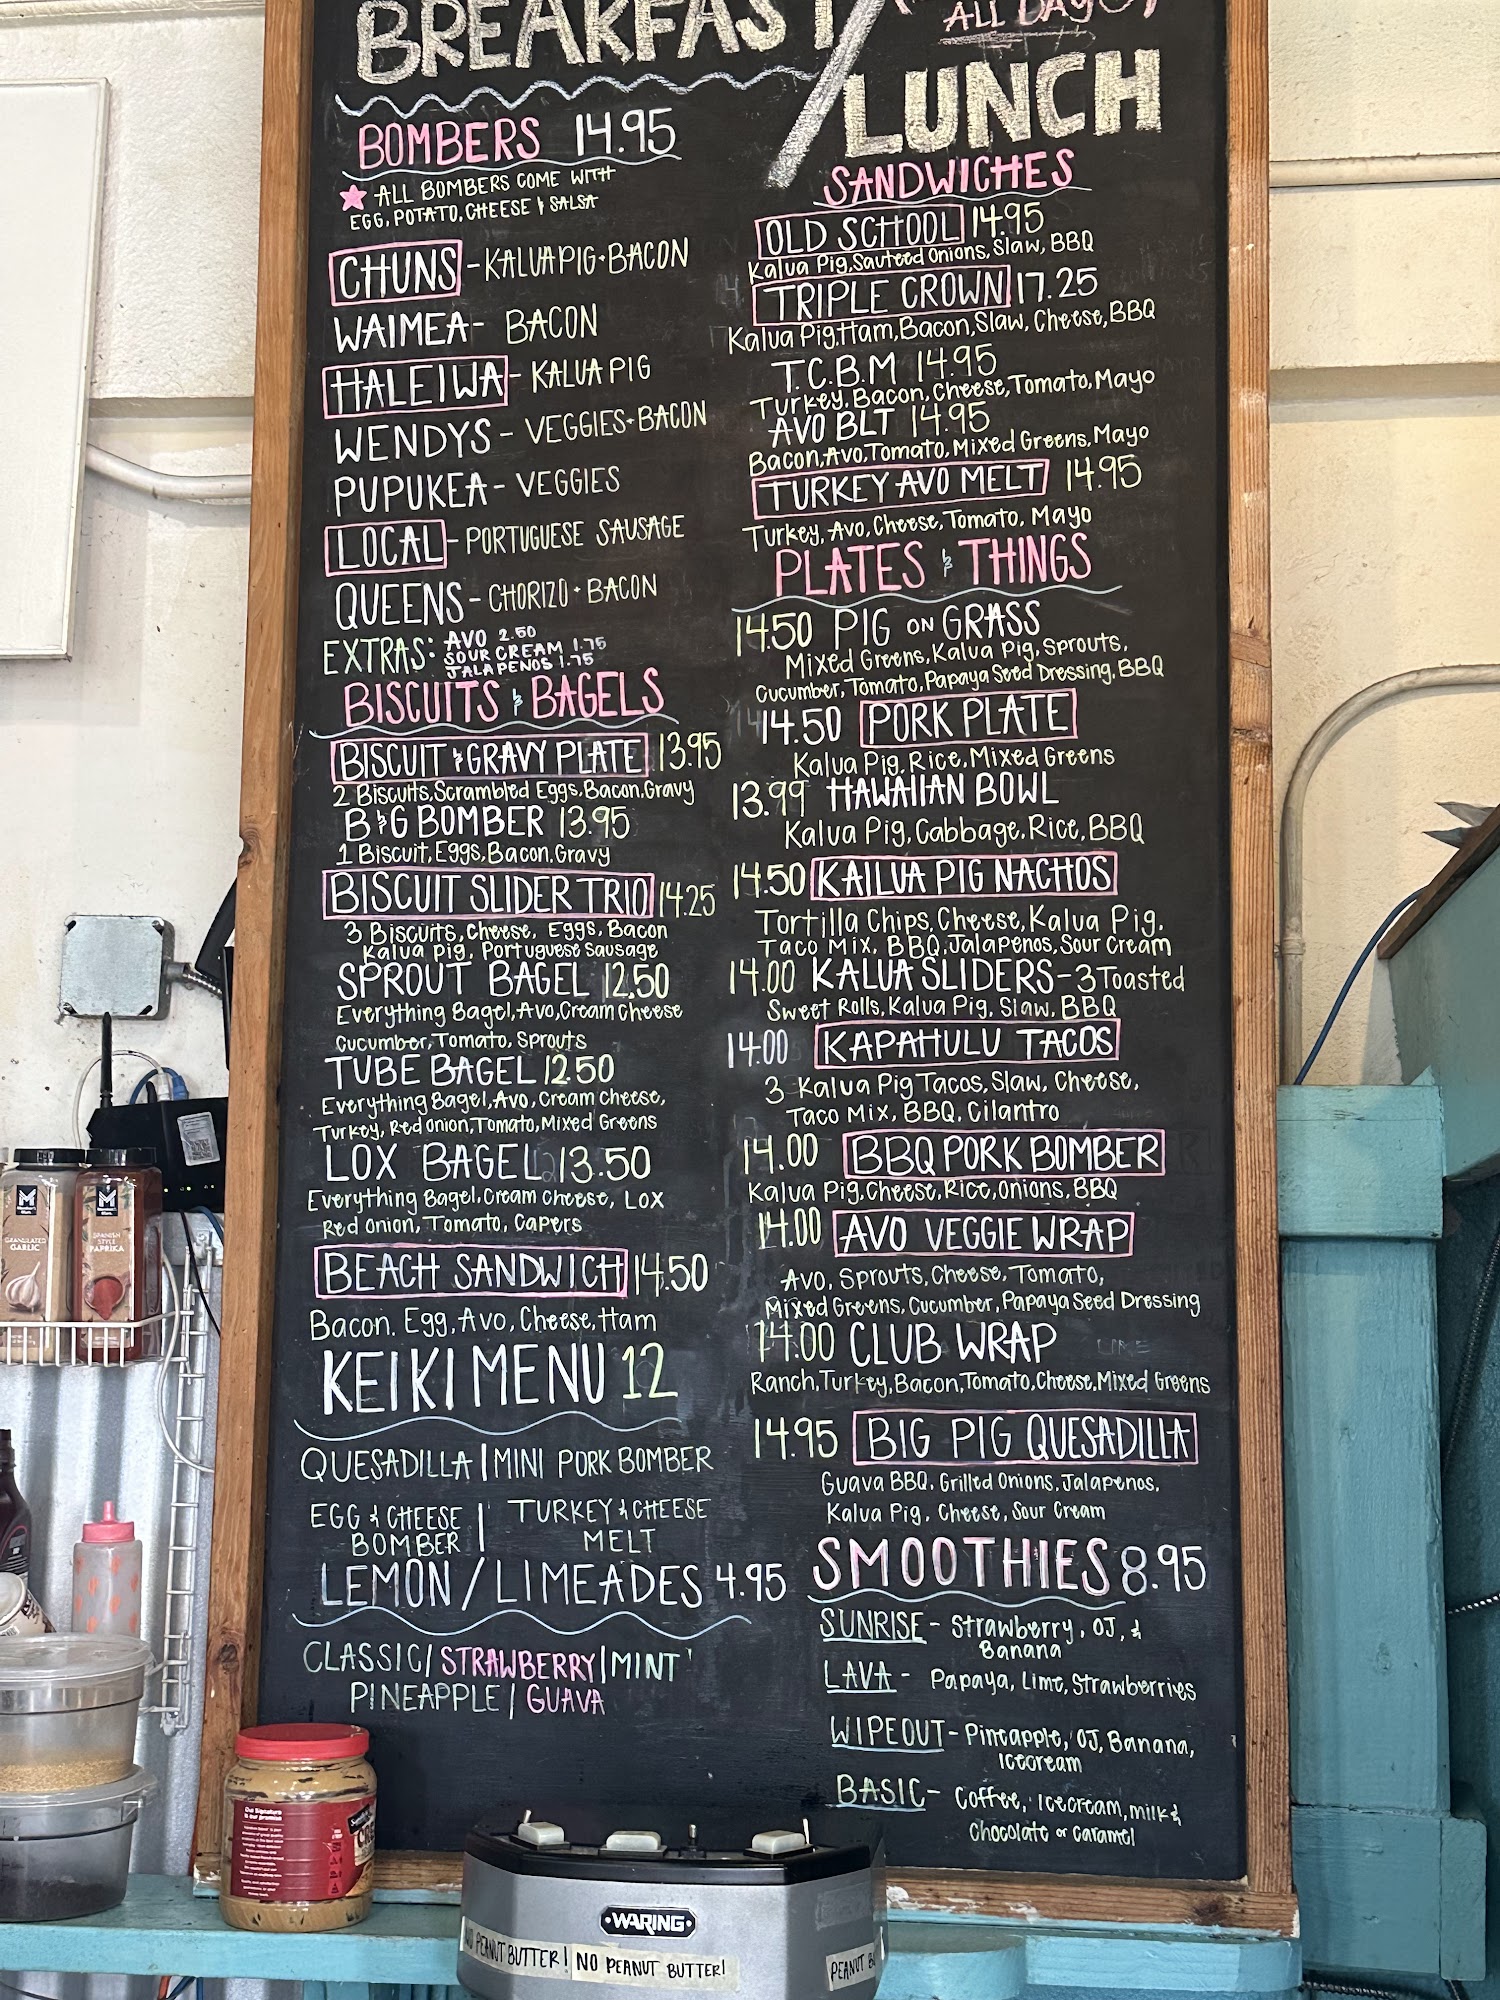 BREAKFAST
BOMBERS 14.95
ALL BOMBERS COME WITH
EGG, POTATO, CHEESE & SALSA
CHUNS - KALUA PIG + BACON
WAIMEA - BACON
HALEIWA - KALUA PIG
WENDYS - VEGGIES + BACON
PUPUKEA - VEGGIES
LOCAL - PORTUGUESE SAUSAGE
QUEENS - CHORIZO + BACON
EXTRAS: AVO 2.50
SOUR CREAM 1.75
JALAPENOS 1.75
BISCUITS & BAGELS
BISCUIT & GRAVY PLATE 13.95
2 Biscuits, Scrambled Eggs, Bacon, Gravy
B&G BOMBER 13.95
1 Biscuit, Eggs, Bacon, Gravy
BISCUIT SLIDER TRIO 14.25
3 Biscuits, Cheese, Eggs, Bacon
Kalua Pig, Portuguese Sausage
SPROUT BAGEL 12.50
Everything Bagel, Avo, Cream Cheese
Cucumber, Tomato, Sprouts
TUBE BAGEL 12.50
Everything Bagel, Avo, Cream Cheese,
Turkey, Red Onion, Tomato, Mixed Greens
LOX BAGEL 13.50
Everything Bagel, Cream Cheese, Lox
Red Onion, Tomato, Capers
BEACH SANDWICH 14.50
Bacon, Egg, Avo, Cheese, Ham
KEIKI MENU 12
QUESADILLA | MINI PORK BOMBER
EGG & CHEESE BOMBER | TURKEY & CHEESE MELT
LEMON / LIMEADES 4.95
CLASSIC | STRAWBERRY | MINT
PINEAPPLE | GUAVA
ALL DAY
LUNCH
SANDWICHES
OLD SCHOOL 14.95
Kalua Pig, Sauteed Onions, Slaw, BBQ
TRIPLE CROWN 17.25
Kalua Pig, Ham, Bacon, Slaw, Cheese, BBQ
T.C.B.M 14.95
Turkey, Bacon, Cheese, Tomato, Mayo
AVO BLT 14.95
Bacon, Avo, Tomato, Mixed Greens, Mayo
TURKEY AVO MELT 14.95
Turkey, Avo, Cheese, Tomato, Mayo
PLATES & THINGS
14.50 PIG ON GRASS
Mixed Greens, Kalua Pig, Sprouts,
Cucumber, Tomato, Papaya Seed Dressing, BBQ
14.50 PORK PLATE
Kalua Pig, Rice, Mixed Greens
13.99 HAWAIIAN BOWL
Kalua Pig, Cabbage, Rice, BBQ
14.50 KAILUA PIG NACHOS
Tortilla Chips, Cheese, Kalua Pig,
Taco Mix, BBQ, Jalapenos, Sour Cream
14.00 KALUA SLIDERS - 3 Toasted
Sweet Rolls, Kalua Pig, Slaw, BBQ
14.00 KAPAHULU TACOS
3 Kalua Pig Tacos, Slaw, Cheese,
Taco Mix, BBQ, Cilantro
14.00 BBQ PORK BOMBER
Kalua Pig, Cheese, Rice, Onions, BBQ
14.00 AVO VEGGIE WRAP
Avo, Sprouts, Cheese, Tomato,
Mixed Greens, Cucumber, Papaya Seed Dressing
14.00 CLUB WRAP
Ranch, Turkey, Bacon, Tomato, Cheese, Mixed Greens
14.95 BIG PIG QUESADILLA
Guava BBQ, Grilled Onions, Jalapenos,
Kalua Pig, Cheese, Sour Cream
SMOOTHIES 8.95
SUNRISE - Strawberry, OJ, &
Banana
LAVA - Papaya, Lime, Strawberries
WIPEOUT - Pineapple, OJ, Banana,
Icecream
BASIC - Coffee, Icecream, milk &
Chocolate or Caramel
GRANULATED
GARLIC
SPANISH
STYLE
PAPRIKA
WARING
PEANUT BUTTER! NO PEANUT BUTTER!
PEANUT